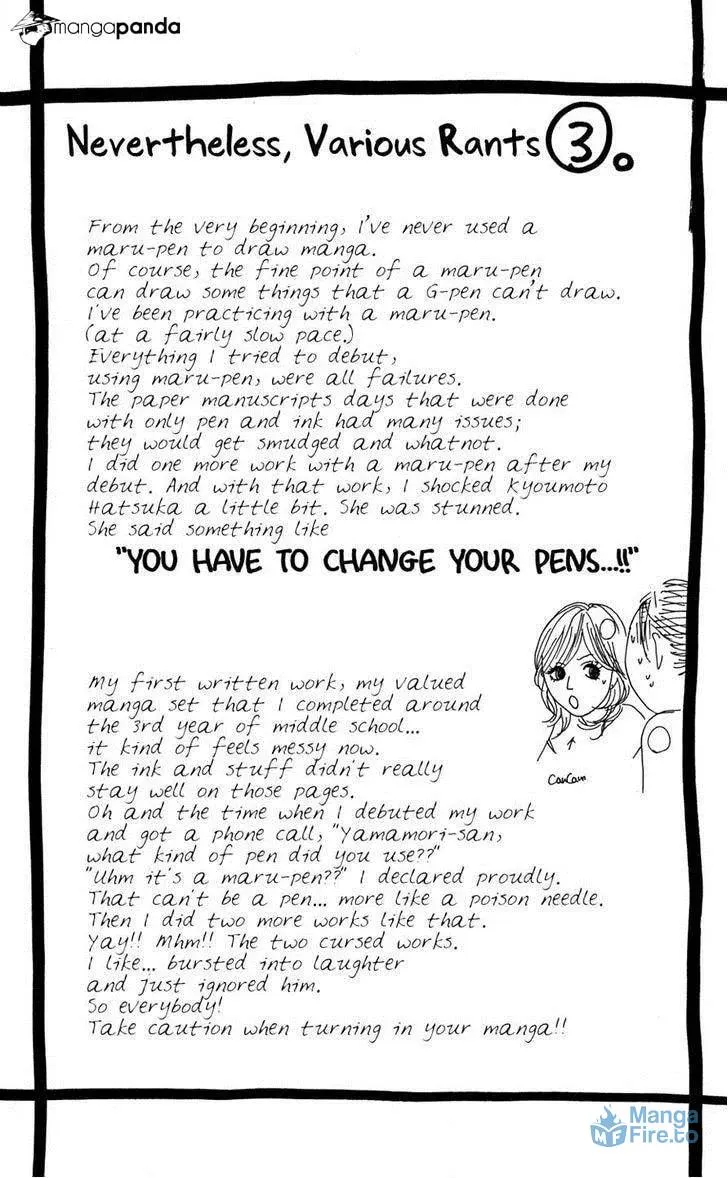 mangapanda
Nevertheless, Various Rants 3.
From the very beginning, I've never used a
maru-pen to draw manga.
Of course, the fine point of a maru-pen
can draw some things that a G-pen can't draw.
I've been practicing with a maru-pen.
(at a fairly slow pace.)
Everything I tried to debut,
using maru-pen, were all failures.
The paper manuscripts days that were done
with only pen and ink had many issues;
they would get smudged and whatnot.
I did one more work with a maru-pen after my
debut. And with that work, I shocked Kyoumoto
Hatsuka a little bit. She was stunned.
She said something like
"YOU HAVE TO CHANGE YOUR PENS...!!"
My first written work, my valued
manga set that I completed around
the 3rd year of middle school...
it kind of feels messy now.
The ink and stuff didn't really
stay well on those pages.
Oh and the time when I debuted my work
and got a phone call, "Yamamori-san,
what kind of pen did you use??"
"Uhm it's a maru-pen??" I declared proudly.
That can't be a pen... more like a poison needle.
Then I did two more works like that.
Yay!! Mhm!! The two cursed works.
I like... bursted into laughter
and just ignored him.
So everybody!
Take caution when turning in your manga!!
CanCam
Manga
MF Fire.to